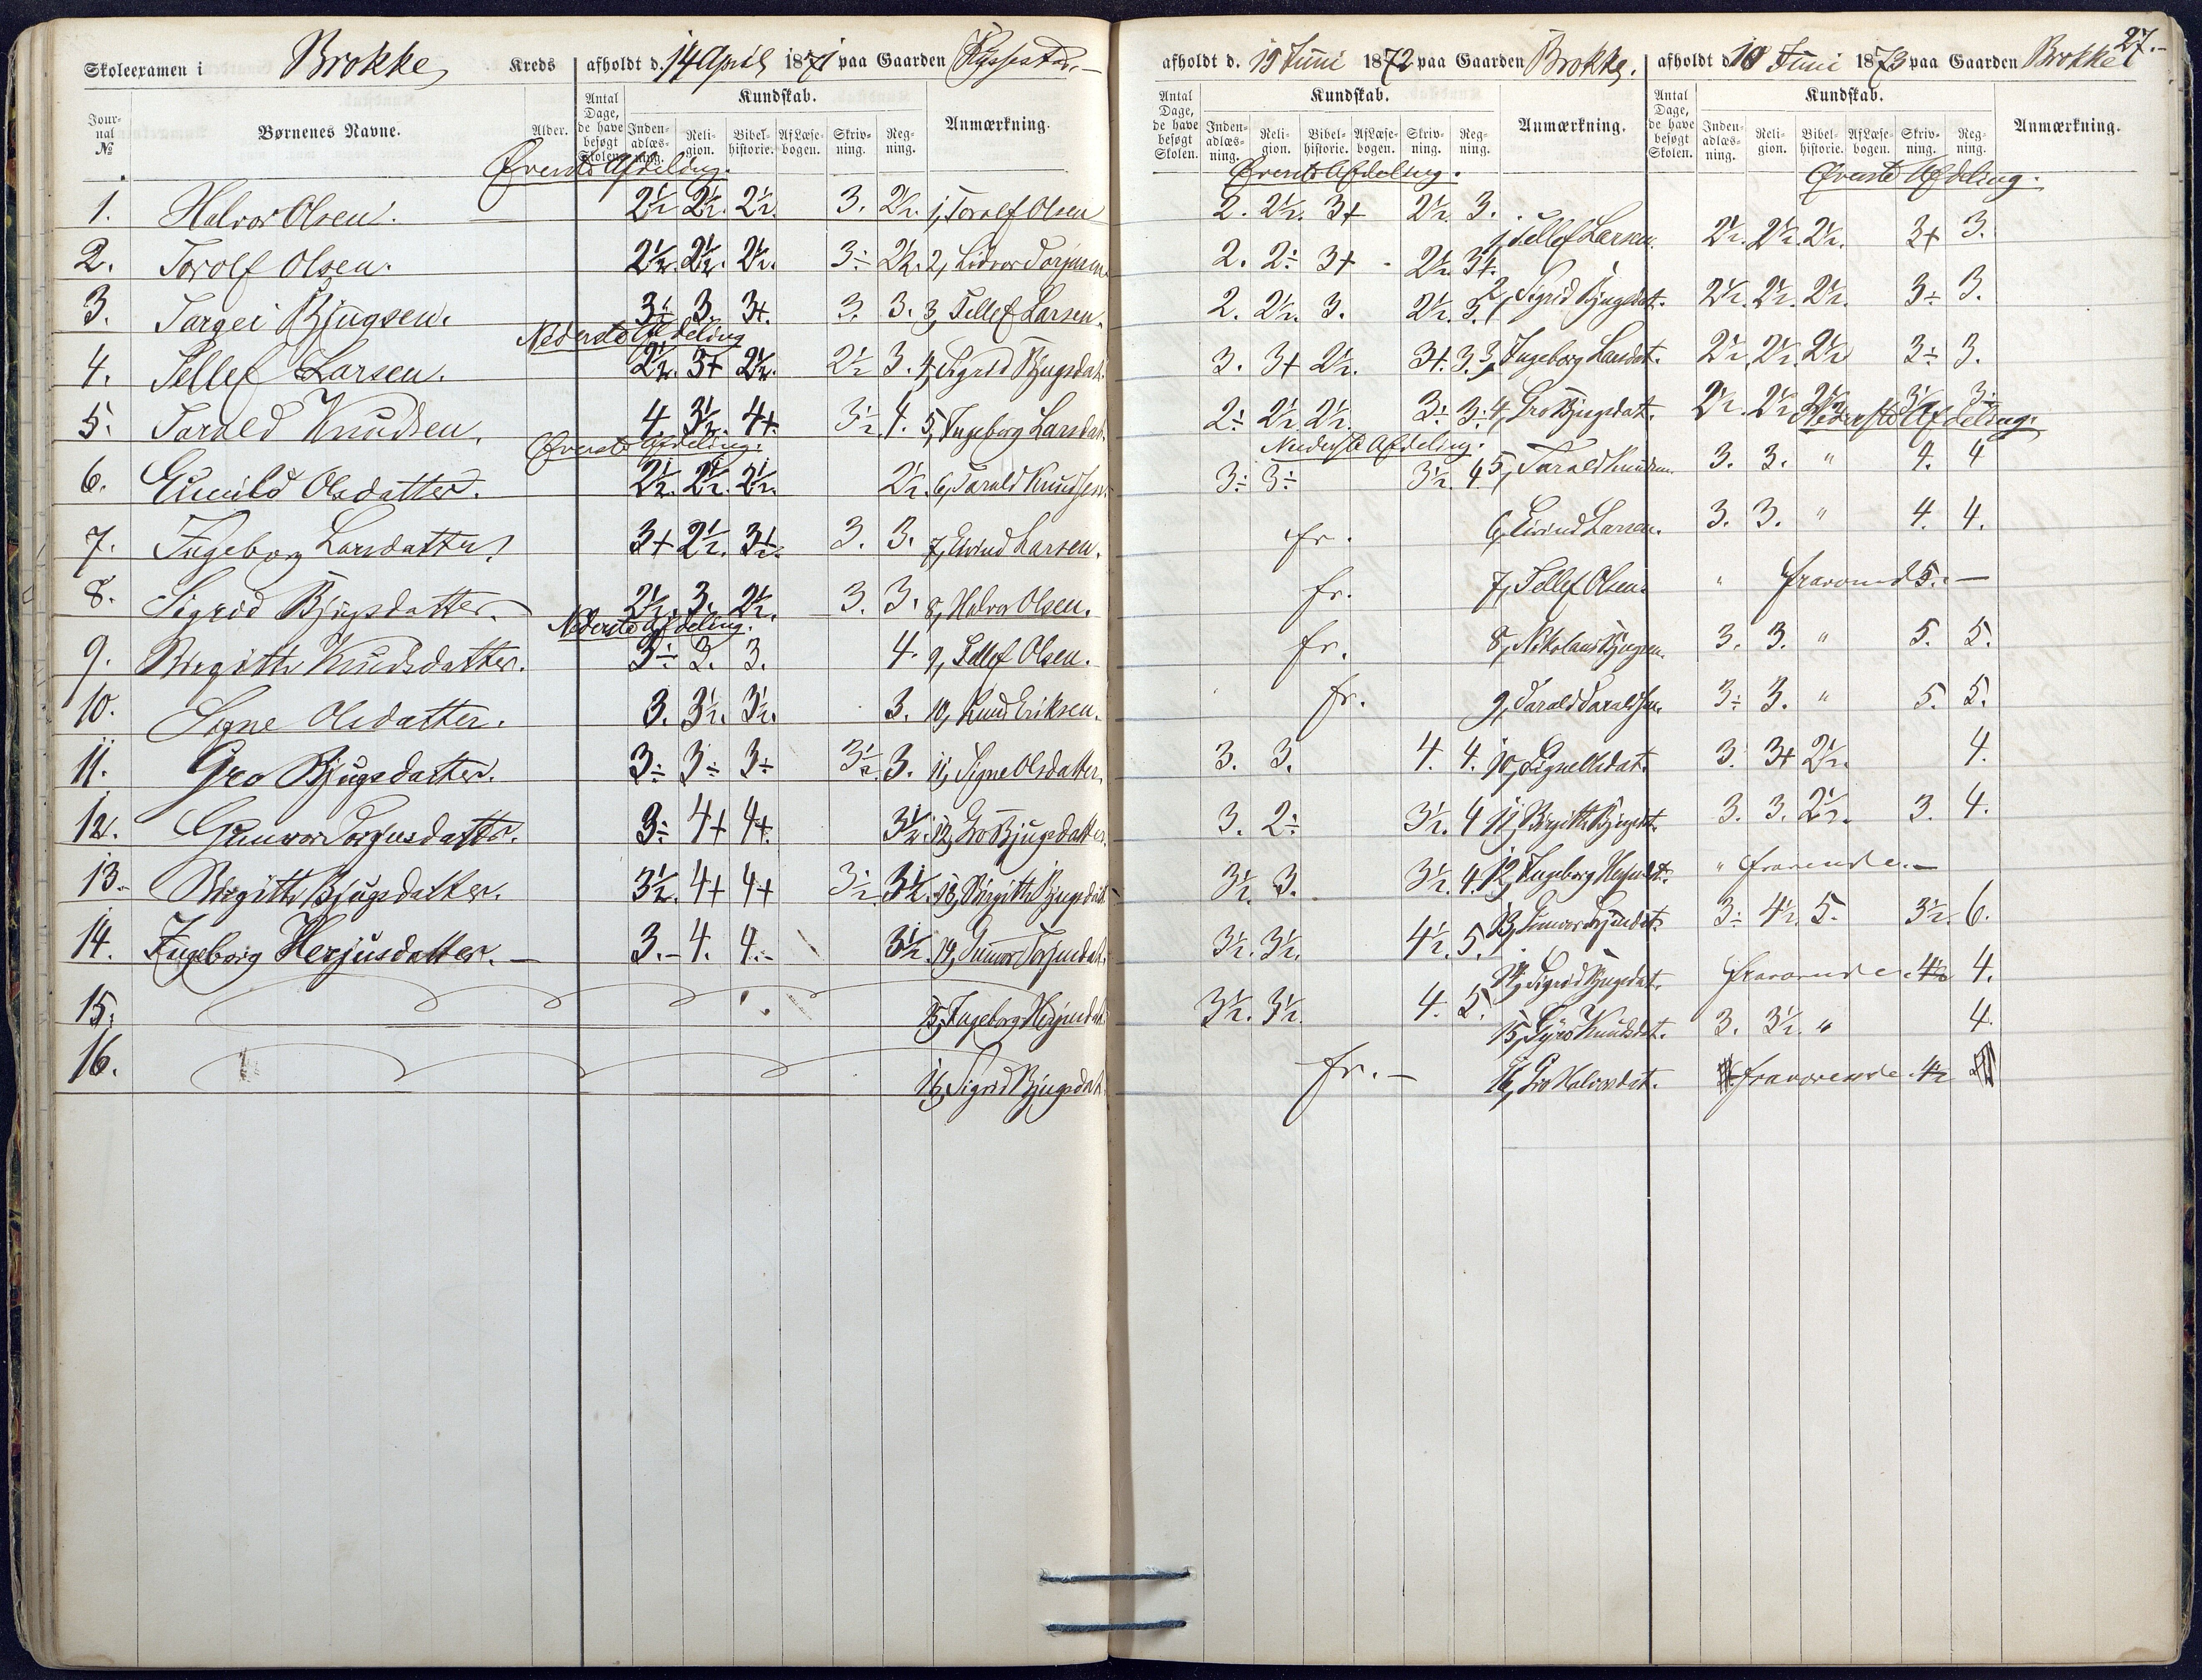 27.
Skoleexamen i Brokke Kreds afholdt d. 14 April 1871 paa Gaarden Rysstad.
Jour-nal № Børnenes Navne. Alder. Antal Dage, de have besøgt Skolen. Kundskab. Inden-adlæs-ning. Reli-gion. Bibel-historie. Af Læse-bogen. Skriv-ning. Reg-ning. Anmærkning.
Øverste Afdeling.
1. Halvor Olsen. 2½ 2½. 2½. 3. 2½. 1, Torolf Olsen
2. Torolf Olsen. 2½. 2½. 2½. 3÷ 2½. 2, Torjusen
3. Targei Bjugsen. 3÷ 3. 3+. 3. 3. 3, Tellef Larsen.
Nederste Afdeling
4. Tellef Larsen. 2½. 3+ 2½. 2½ 3. 4, Sigrid Bjugsdat.
5. Tarald Knudsen. 4. 3½. 4+. 3½. 4. 5, Ingeborg Larsdat.
Øverste Afdeling.
6. Gunild Olsdatter. 2½. 2½. 2½. 2½. 6, Tarald Knudsen.
7. Ingeborg Larsdatter 3+ 2½. 3½. 3. 3. 7, Eivind Larsen.
8. Sigrid Bjugsdatter. 2½. 3. 2½. 3. 3. 8, Halvor Olsen.
Nederste Afdeling.
9. Birgitte Knudsdatter. 3÷ 3. 3. 4. 9, Tellef Olsen.
10. Signe Olsdatter. 3. 3½. 3½. 3. 10, Knud Eriksen.
11. Gro Bjugsdatter. 3÷ 3÷ 3÷ 3½. 3. 11, Signe Olsdatter,
12. Gunvor Torjusdatter. 3÷ 4+ 4+. 3½. 12, Gro Bjugsdatter.
13. Birgitte Bjugsdatter. 3½. 4+ 4+ 3½ 3½. 13, Birgitte Bjugsdat.
14. Ingeborg Herjusdatter. 3. 4. 4. 3½. 14, Gunvor Torjusdat.
15. 15, Ingeborg Herjusdat.
16. 16, Sigrid Bjugsdat.
afholdt d. 19 Juni 1872 paa Gaarden Brokke.
Antal Dage, de have besøgt Skolen. Kundskab. Inden-adlæs-ning. Reli-gion. Bibel-historie. Af Læse-bogen. Skriv-ning. Reg-ning. Anmærkning.
Øverste Afdeling.
2. 2½. 3+ 2½. 3. 1, Tellef Larsen.
2. 2÷ 3+ - 2½. 3+. 2, Sigrid Bjugsdat.
2. 2½. 3. 2½. 3.
3. 3+ 2½. 3+. 3. 3, Ingeborg Larsdat.
2÷ 2½ 2½. 3÷ 3÷ 4, Gro Bjugsdat.
Nederste Afdeling.
3÷ 3÷ 3½. 4 5, Tarald Knudsen.
fr. 6, Eivind Larsen.
fr. 7, Tellef Olsen.
fr. 8, Nikolaus Bjugsen.
fr. 9, Tarald Taraldsen.
3. 3. 4. 4. 10, Signe Olsdat.
3. 2÷ 3½. 4 11, Birgitte Bjugsdat.
3½. 3. 3½. 4. 12, Ingeborg Herjusdat.
3½. 3½. 4½. 5. 13, Gunvor Torjusdat.
3½. 3½. 4. 5. 14, Sigrid Bjugsdat.
15, Knudsdat.
fr. 16, Gro Halvorsdat.
afholdt d. 10 Juni 1873 paa Gaarden Brokke
Antal Dage, de have besøgt Skolen. Kundskab. Inden-adlæs-ning. Reli-gion. Bibel-historie. Af Læse-bogen. Skriv-ning. Reg-ning. Anmærkning.
Øverste Afdeling.
2½. 2½. 2½. 3+ 3.
2½. 2½. 2½. 3÷ 3.
2½. 2½. 2½ 3÷ 3.
2½. 2½ 2½ 3½ 3÷
Nederste Afdeling.
3. 3. " 4. 4
3. 3. " 4. 4.
" fravärende 5.
3. 3. " 5. 5.
3÷ 3. " 5. 5.
3. 3+ 2½. 4.
3. 3. 2½. 3. 4.
" fraværende.
3÷ 4½. 5. 3½. 6.
fraværende 4½ 4.
3. 3½. " 4.
fraværende 4½